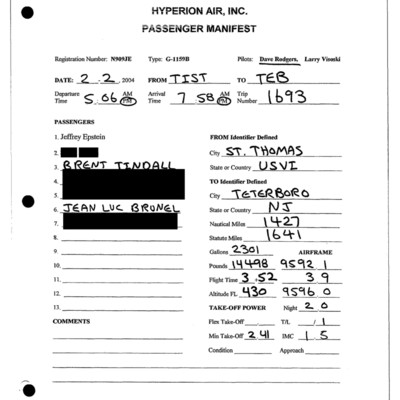 HYPERION AIR, INC.
PASSENGER MANIFEST
Registration Number: N909JE Type: G-1159B Pilots: Dave Rodgers, Larry Visoski
DATE: 2 . 2 . 2004 FROM TIST TO TEB
Departure Time 5 06 AM PM Arrival Time 7 58 AM PM Trip Number 1693
PASSENGERS
1. Jeffrey Epstein FROM Identifier Defined
2. City ST. THOMAS
3. BRENT TINDALL State or Country USVI
4. TO Identifier Defined
5. City TETERBORO
6. JEAN LUC BRUNEL State or Country NJ
7. Nautical Miles 1427
8. Statute Miles 1641
9. Gallons 2301 AIRFRAME
10. Pounds 14498 9592 1
11. Flight Time 3 . 52 3 9
12. Altitude FL 430 9596 0
13. TAKE-OFF POWER Night 2 0
COMMENTS Flex Take-Off T/L / 1
Min Take-Off 2 41 IMC 1 5
Condition Approach